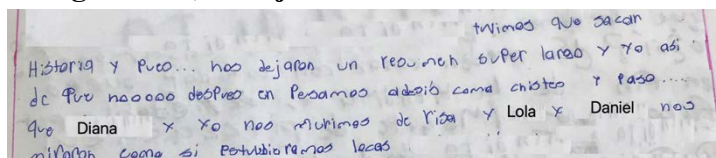 tuvimos que sacar
Historia y Pueo... nos dejaron un resumen super largo y yo así
de que nooooo despues en Pesamos a decir como chistes y paso....
que Diana y yo nos murimos de risa y Lola y Daniel nos
miraron como si estubieramos locas